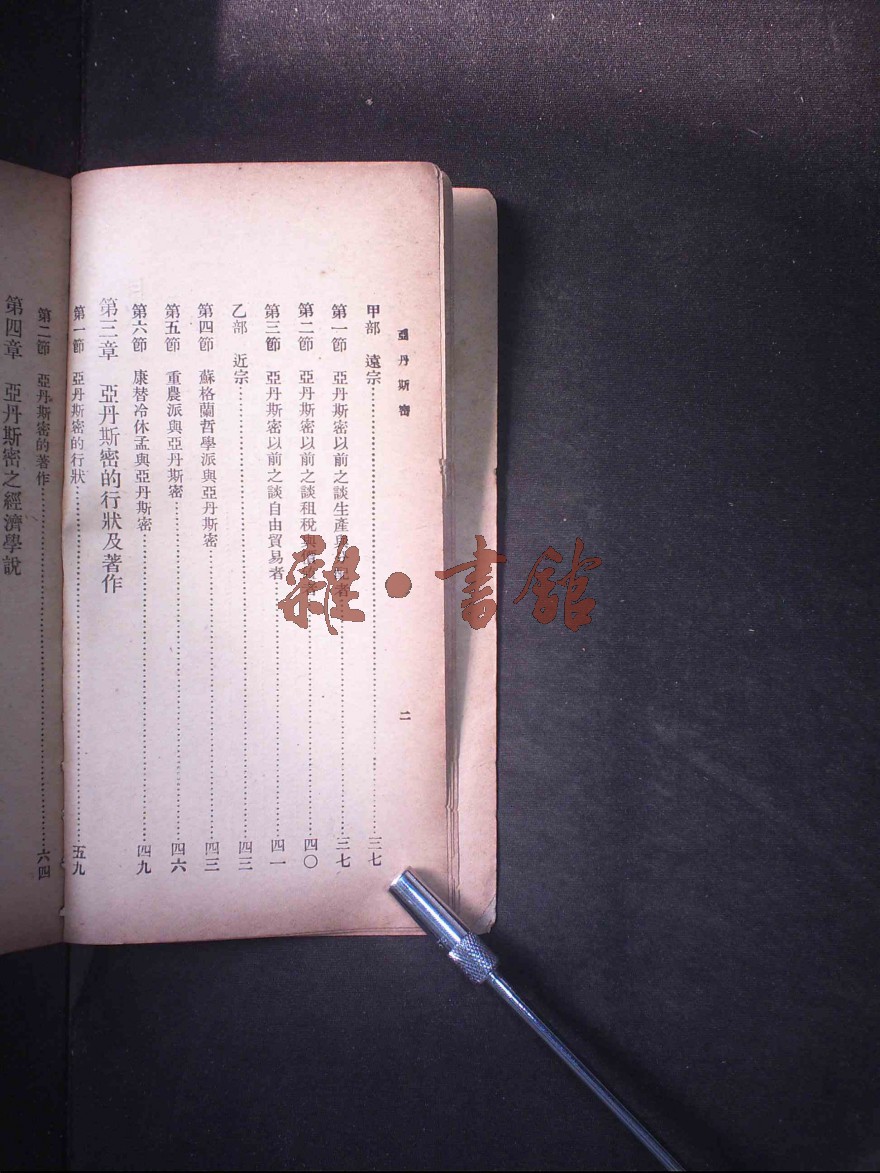 亞丹斯密
二
甲部 遠宗……三七
第一節 亞丹斯密以前之談生產與分配者……三七
第二節 亞丹斯密以前之談租稅與……四〇
第三節 亞丹斯密以前之談自由貿易者……四一
乙部 近宗……四三
第四節 蘇格蘭哲學派與亞丹斯密……四三
第五節 重農派與亞丹斯密……四六
第六節 康替冷休孟與亞丹斯密……四九
第三章 亞丹斯密的行狀及著作
第一節 亞丹斯密的行狀……五九
第二節 亞丹斯密的著作……六四
第四章 亞丹斯密之經濟學說
雜·書館